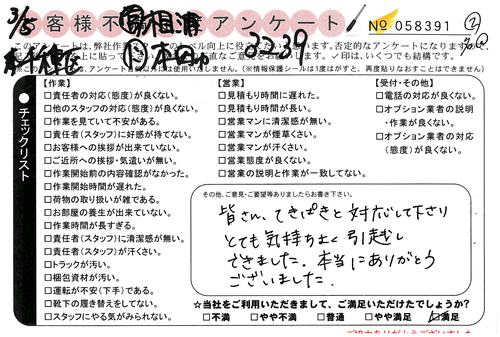 3/5
お客様不満足度アンケート
No 058391
②
3239
このアンケートは、弊社作業
向上に役立て
否定的なアンケートになりますので、
✓印は、いくつでも結構です。
(※情報保護シールは1度はがすと、再度貼りなおすことはできません)
チェックリスト
【作業】
□責任者の対応(態度)が良くない。
□他のスタッフの対応(態度)が良くない。
□作業を見ていて不安がある。
□責任者(スタッフ)に好感が持てない。
□お客様への挨拶が出来ていない。
□ご近所への挨拶・気遣いが無い。
□作業開始前の内容確認がなかった。
□作業開始時間が遅れた。
□荷物の取り扱いが雑である。
□お部屋の養生が出来ていない。
□作業時間が長すぎる。
□責任者(スタッフ)に清潔感が無い。
□責任者(スタッフ)が汗くさい。
□トラックが汚い。
□梱包資材が汚い。
□運転が不安(下手)である。
□靴下の履き替えをしてない。
□スタッフにやる気がみられない。
【営業】
□見積もり時間に遅れた。
□見積もり時間が長い。
□営業マンに清潔感が無い。
□営業マンが煙草くさい。
□営業マンが汗くさい。
□営業態度が良くない。
□営業の説明と作業が一致してない。
【受付・その他】
□電話の対応が良くない。
□オプション業者の説明
・作業が良くない。
□オプション業者の対応
(態度)が良くない。
その他、ご意見・ご要望等ありましたらお書き下さい。
皆さん、てきぱきと対応して下さり
とても気持ちよく引越し
できました。本当にありがとう
ございました。
☆当社をご利用いただきまして、ご満足いただけたでしょうか?
□不満 □やや不満 □普通 □やや満足 ☑満足
ご協力ありがとうございました